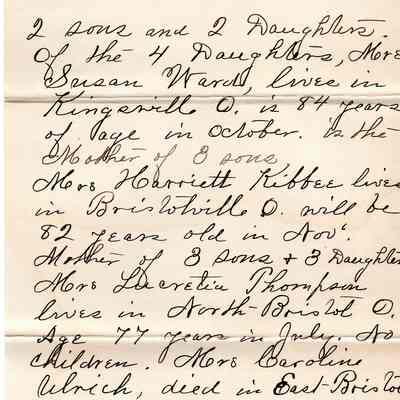 2 sons and 2 Daughters.
Of the 4 Daughters, Mrs
Susan Ward, lives in
Kingsville O. is 84 years
of age in October. is the
Mother of 3 sons
Mrs Harriett Kibbee lives
in Bristolville O. will be
82 years old in Nov.
Mother of 3 sons + 3 Daughters
Mrs Lucretia Thompson
lives in North-Bristol O.
Age 77 years in July. No
children. Mrs Caroline
Ulrich, died in East-Bristol